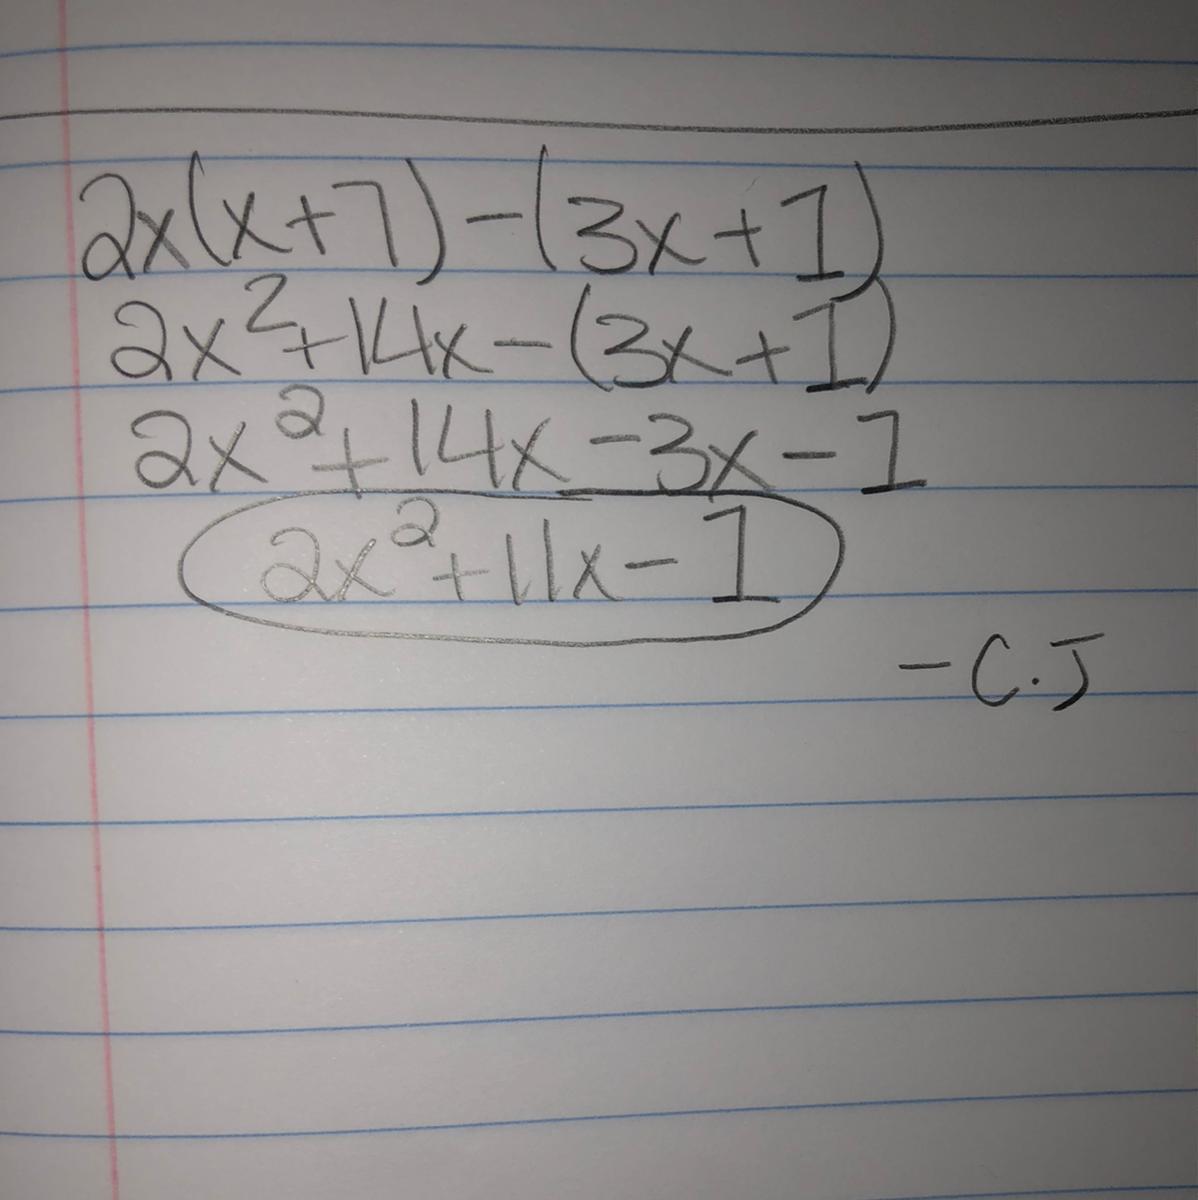 2x(x+7)-(3x+1)
2x²+14x-(3x+1)
2x²+14x-3x-1
2x²+11x-1
-C.J